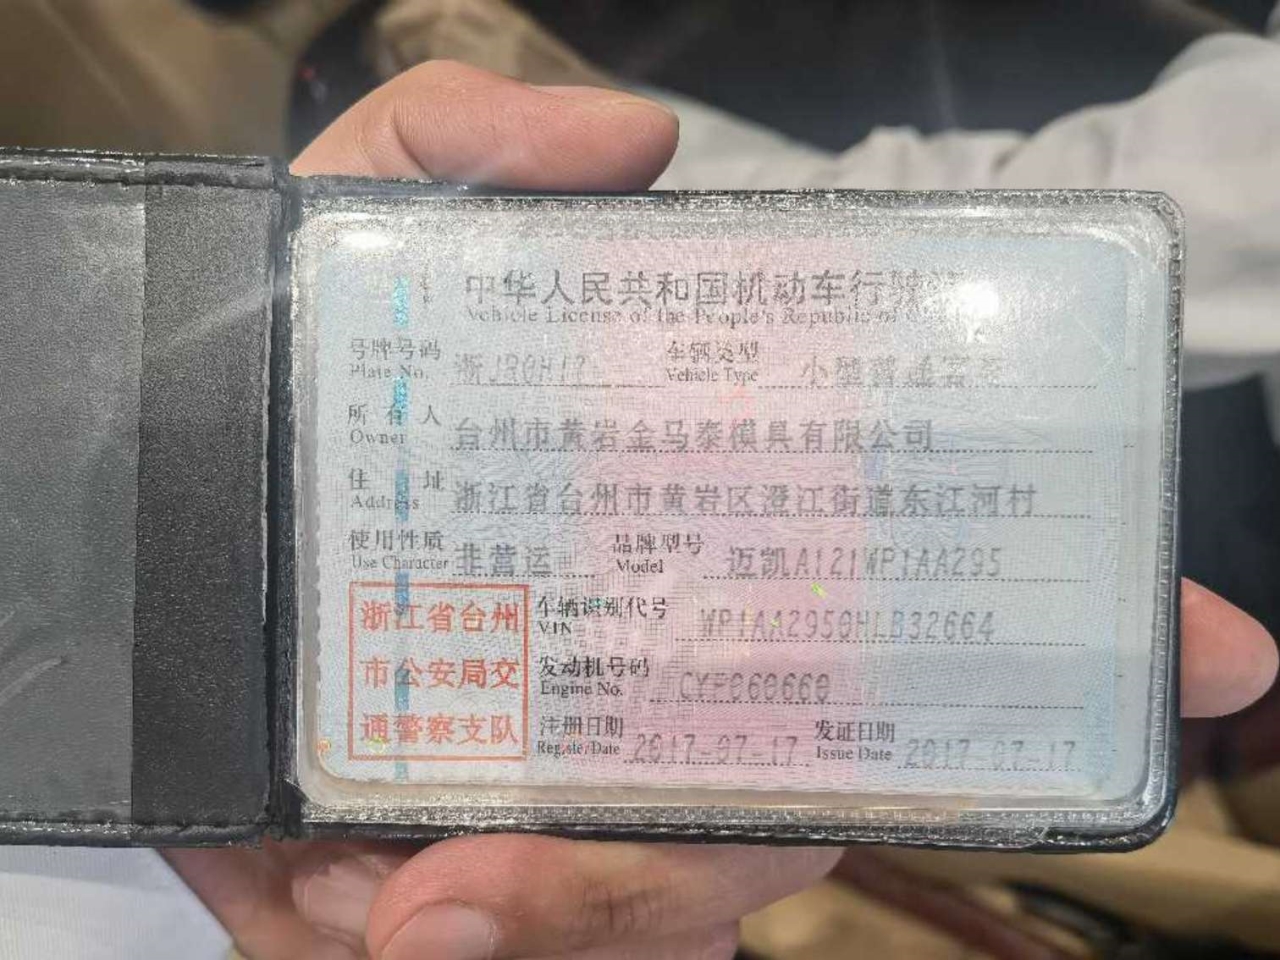 中华人民共和国机动车行驶
Vehicle License of the People's Republic of
号牌号码 Plate No. 车辆类型 Vehicle Type 小型普通客车
所有人 Owner 台州市黄岩金马泰模具有限公司
住址 Address 浙江省台州市黄岩区澄江街道东江河村
使用性质 Use Character 非营运 品牌型号 Model 迈凯A121WP1AA295
浙江省台州
市公安局交
通警察支队
车辆识别代号 VIN WP1AA2950HLB32664
发动机号码 Engine No. CYP060660
注册日期 Register Date 2017-07-17 发证日期 Issue Date 2017-07-17